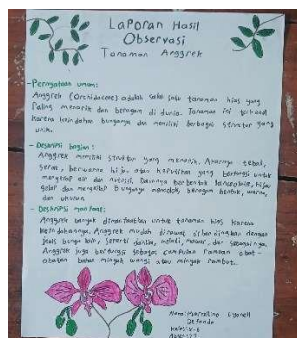 Laporan Hasil
Observasi
Tanaman Anggrek
- Pernyataan umum:
Anggrek (Orchidaceae) adalah salah satu tanaman hias yang
Paling menarik dan beragam di dunia. Tanaman ini terkenal
karena keindahan bunganya dan memiliki berbagai struktur yang
unik.
- Deskripsi bagian:
Anggrek memiliki struktur yang menarik. Akarnya tebal,
berwarna hijau atau keputihan yang berfungsi untuk
menyerap air dan nutrisi. Daunnya berbentuk hijau
gelap dan mengkilap bunganya mencolok, beragam bentuk, warna,
dan ukuran.
- Deskripsi manfaat:
Anggrek banyak dimanfaatkan untuk tanaman hias karena
keindahannya. Anggrek mudah dirawat dibandingkan dengan
jenis bunga lain, seperti dahlia, melati, mawar, dan sebagainya.
Anggrek juga berfungsi sebagai campuran ramuan obat-
obatan bahan minyak wangi atau minyak rambut.
Nama: Marcellino
Kelas: